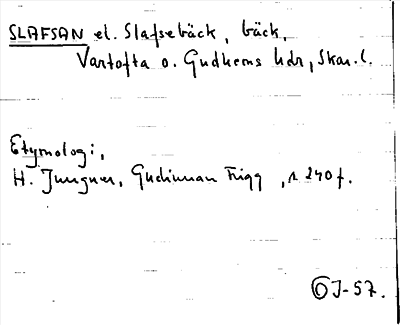 SLAFSAN el. Slafsebäck, bäck,
Vartofta o. Gudhems hdr, Skar. l.
Etymologi,
H. Jungner, Gudinnan Frigg, s 240 f.
OJ-57.